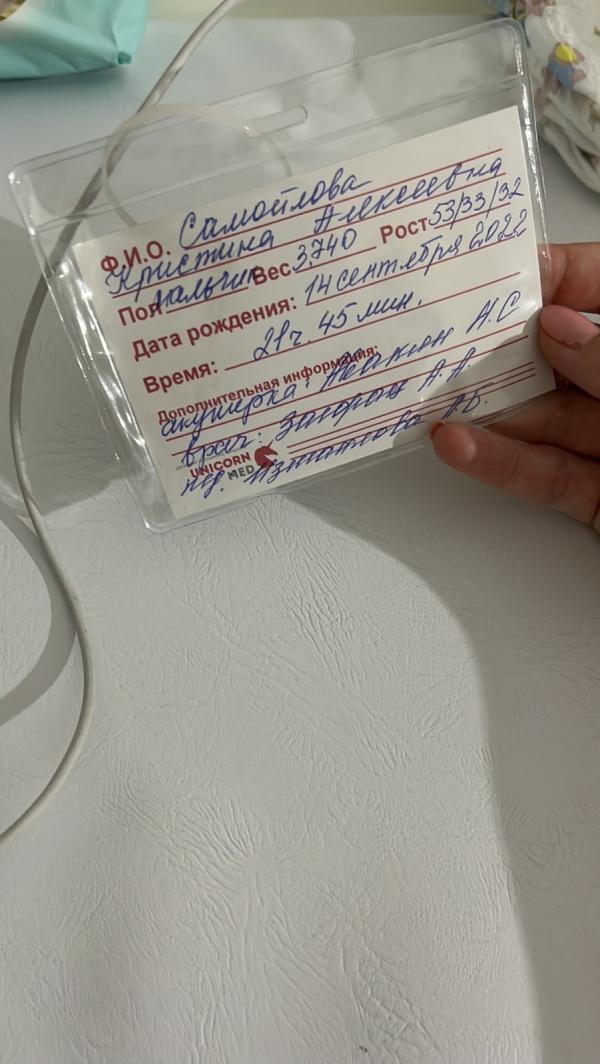 Ф.И.О. Самойлова
Кристина Алексеевна
Пол мальчик Вес 3.740 Рост 53/33/32
Дата рождения: 14 сентября 2022
Время: 21ч. 45 мин.
Дополнительная информация:
акушерка: Н.С
врач: А.А.
А.Б.
UNICORN
MED